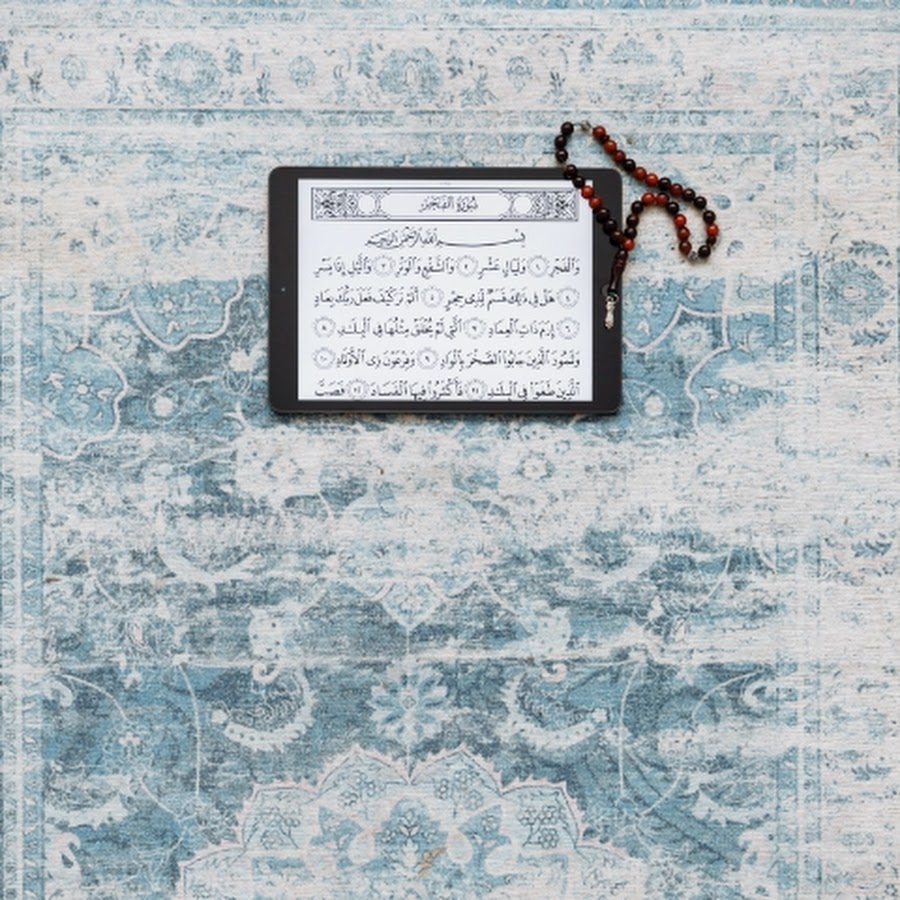 سُورَةُ الفَجْرِ
بِسْمِ اللَّهِ الرَّحْمَٰنِ الرَّحِيمِ
وَالْفَجْرِ ١ وَلَيَالٍ عَشْرٍ ٢ وَالشَّفْعِ وَالْوَتْرِ ٣ وَاللَّيْلِ إِذَا يَسْرِ
٤ هَلْ فِي ذَٰلِكَ قَسَمٌ لِّذِي حِجْرٍ ٥ أَلَمْ تَرَ كَيْفَ فَعَلَ رَبُّكَ بِعَادٍ
٦ إِرَمَ ذَاتِ الْعِمَادِ ٧ الَّتِي لَمْ يُخْلَقْ مِثْلُهَا فِي الْبِلَادِ ٨
وَثَمُودَ الَّذِينَ جَابُوا الصَّخْرَ بِالْوَادِ ٩ وَفِرْعَوْنَ ذِي الْأَوْتَادِ ١٠
الَّذِينَ طَغَوْا فِي الْبِلَادِ ١١ فَأَكْثَرُوا فِيهَا الْفَسَادَ ١٢ فَصَبَّ